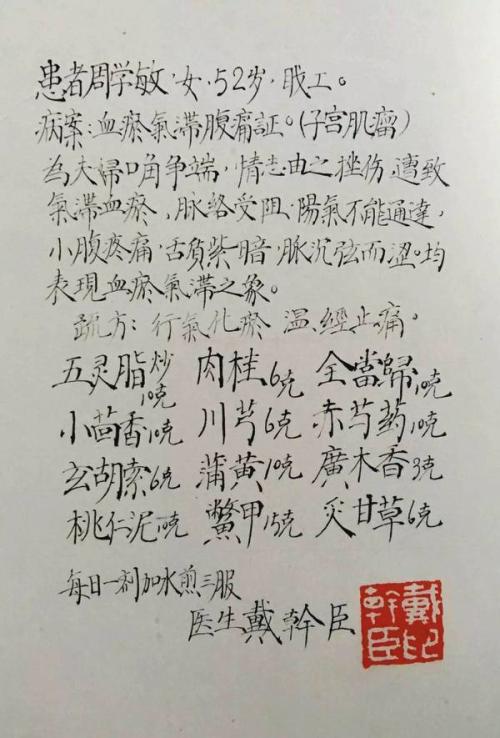 患者周学敏，女，52岁，职工。
病案：血瘀氣滞腹痛証。（子宫肌瘤）
為夫婦口角争端，情志由之挫伤，遭致
氣滞血瘀、脉络受阻，陽氣不能通達，
小腹疼痛，舌质紫暗，脉沉弦而涩。均
表現血瘀氣滞之象。
疏方：行氣化瘀 温經止痛。
五灵脂炒10克 肉桂6克 全當歸10克
小茴香10克 川芎6克 赤芍药10克
玄胡索6克 蒲黄10克 廣木香3克
桃仁泥10克 鱉甲15克 炙甘草6克
每日一剂加水煎三服
医生戴幹臣
戴幹臣印